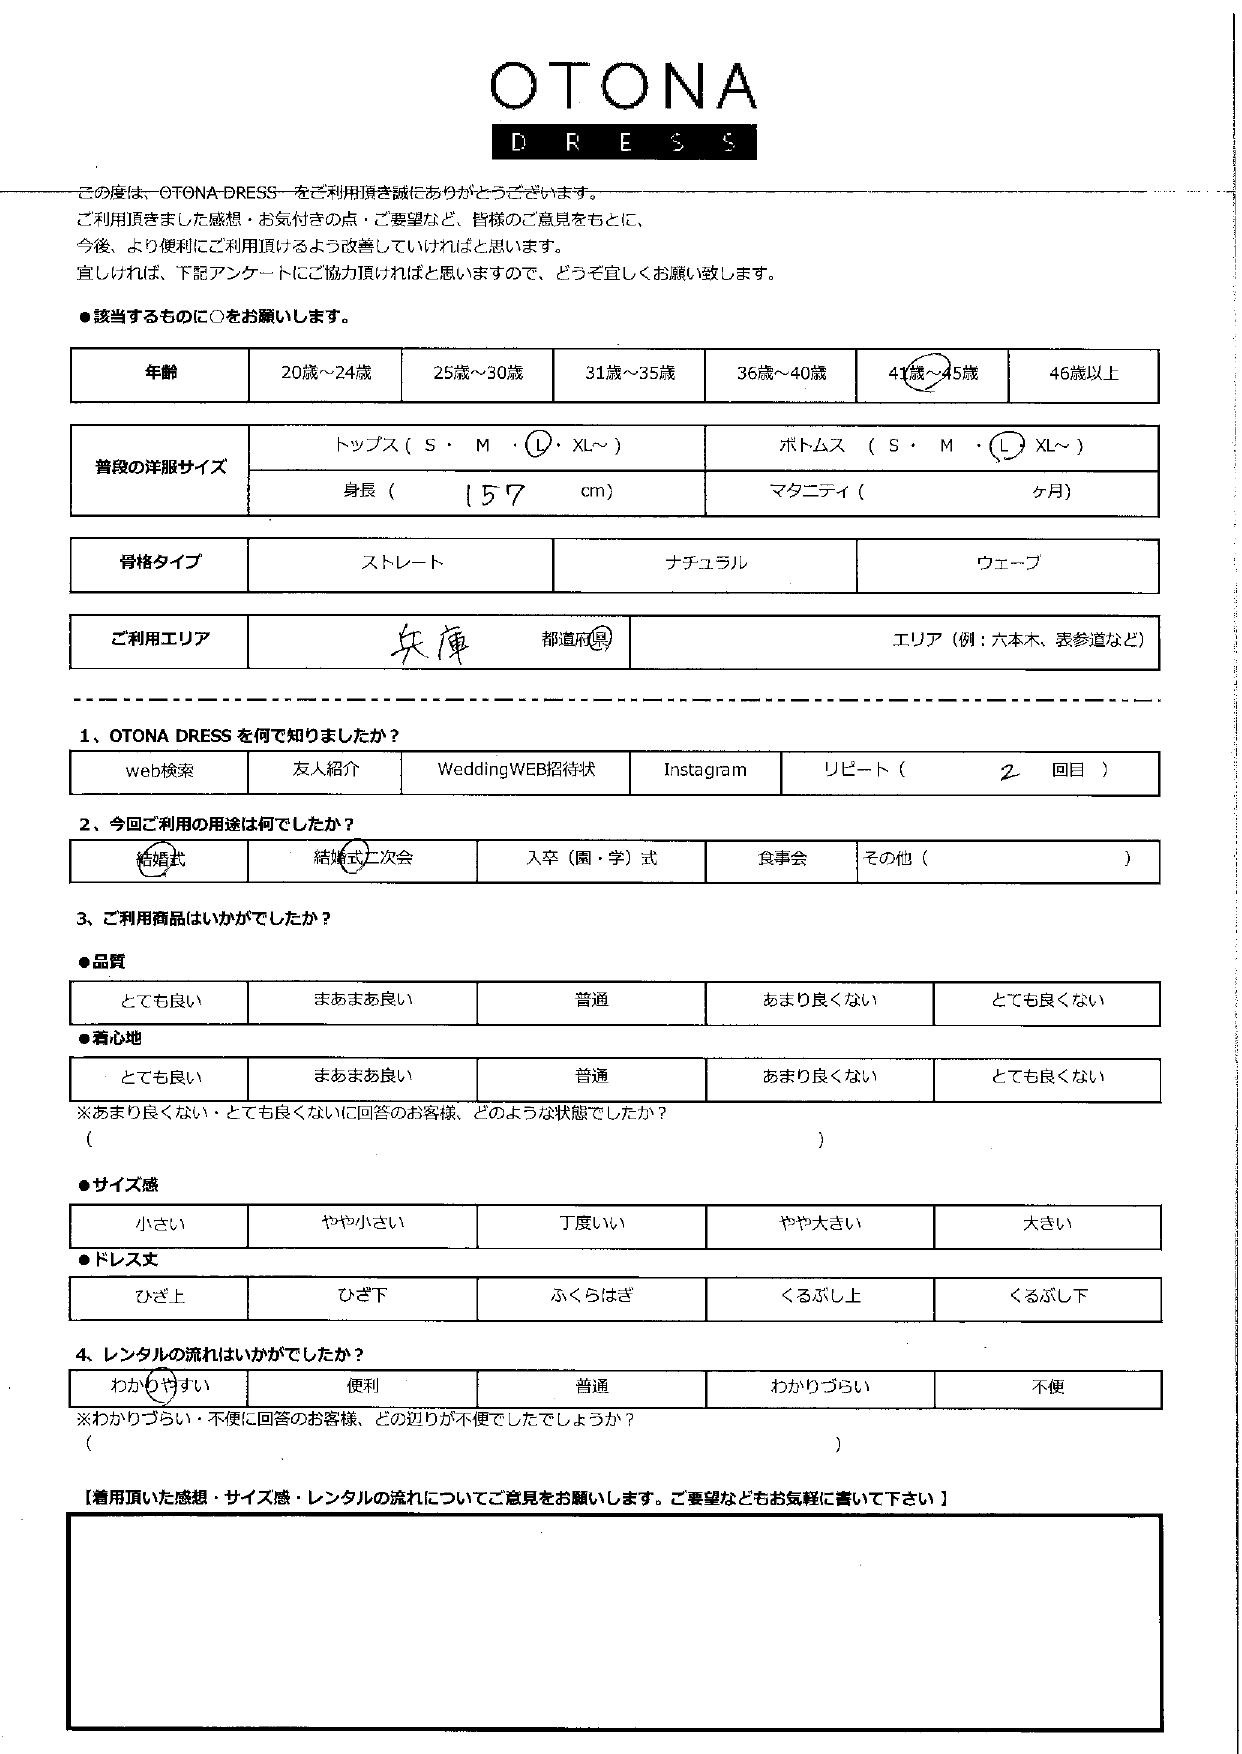 OTONA
DRESS
この度は、OTONA DRESS をご利用頂き誠にありがとうございます。
ご利用頂きました感想・お気付きの点・ご要望など、皆様のご意見をもとに、
今後、より便利にご利用頂けるよう改善していければと思います。
宜しければ、下記アンケートにご協力頂ければと思いますので、どうぞ宜しくお願い致します。
●該当するものに○をお願いします。
年齢 20歳～24歳 25歳～30歳 31歳～35歳 36歳～40歳 41歳～45歳 46歳以上
普段の洋服サイズ トップス ( S ・ M ・ L ・ XL～ ) ボトムス ( S ・ M ・ L ・ XL～ )
身長 ( 157 cm) マタニティ ( ヶ月)
骨格タイプ ストレート ナチュラル ウェーブ
ご利用エリア 兵庫 都道府県 エリア（例：六本木、表参道など）
1、OTONA DRESS を何で知りましたか？
web検索 友人紹介 WeddingWEB招待状 Instagram リピート ( 2 回目 )
2、今回ご利用の用途は何でしたか？
結婚式 結婚式二次会 入卒（園・学）式 食事会 その他 ( )
3、ご利用商品はいかがでしたか？
●品質
とても良い まあまあ良い 普通 あまり良くない とても良くない
●着心地
とても良い まあまあ良い 普通 あまり良くない とても良くない
※あまり良くない・とても良くないに回答のお客様、どのような状態でしたか？
( )
●サイズ感
小さい やや小さい 丁度いい やや大きい 大きい
●ドレス丈
ひざ上 ひざ下 ふくらはぎ くるぶし上 くるぶし下
4、レンタルの流れはいかがでしたか？
わかりやすい 便利 普通 わかりづらい 不便
※わかりづらい・不便に回答のお客様、どの辺りが不便でしたでしょうか？
( )
【着用頂いた感想・サイズ感・レンタルの流れについてご意見をお願いします。ご要望などもお気軽に書いて下さい 】